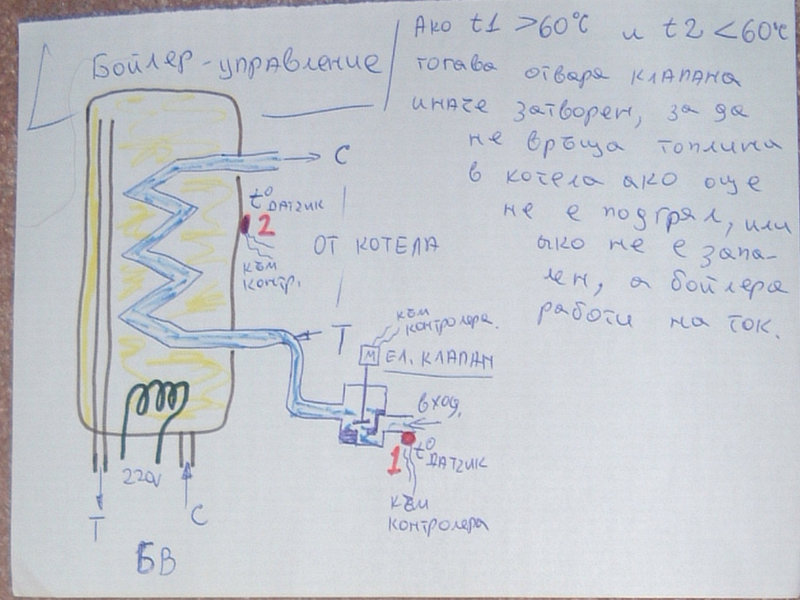 Бойлер - управление
Ако t1 >60°C и t2 <60°C
тогава отваря клапана
иначе затворен, за да
не връща топлина
в котела ако още
не е подгрял, или
ако не е запа-
лен, а бойлера
работи на ток.
C
t° ДАТЧИК
2
КЪМ
КОНТР.
ОТ КОТЕЛА
Т
КЪМ
КОНТРОЛЕРА.
М
ЕЛ. КЛАПАН
ВХОД.
1
t° ДАТЧИК
КЪМ
КОНТРОЛЕРА
220V
Т
С
БВ